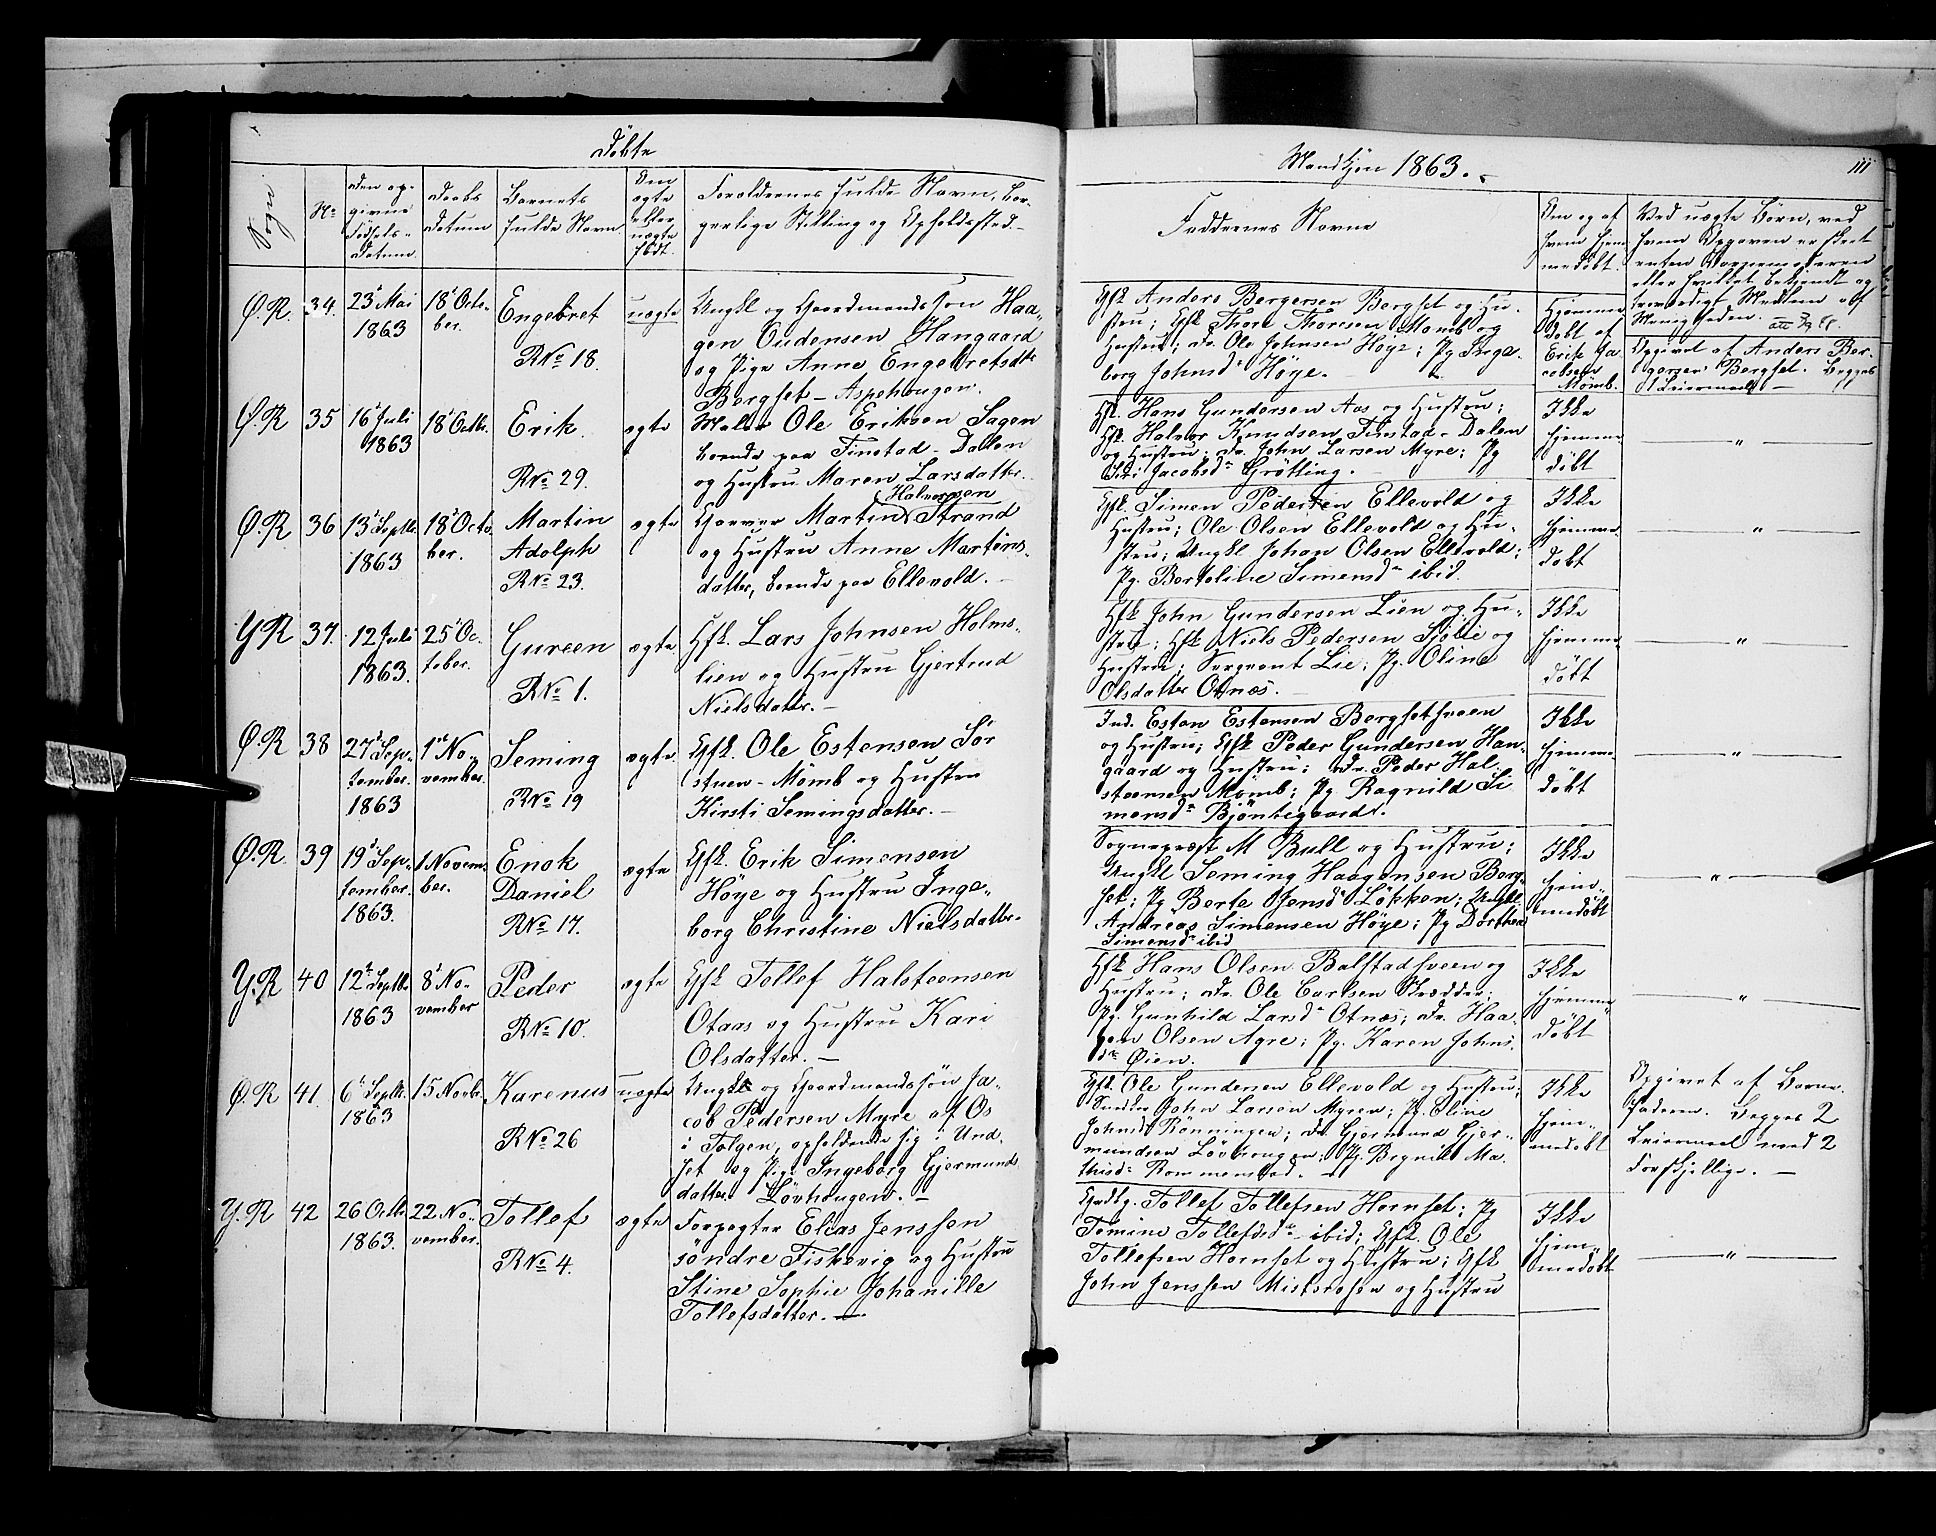 Døbte
Sogn
No
Den op-
givne
Fødsels-
Datum.
Daabs
Datum
Barnets
fulde Navn.
Om
ægte
eller
uægte
født.
Forældrenes fulde Navn, bor-
gerlige Stilling og Opholdssted.
Ø.R. 34. 23de Mai
1863
18de Octo-
ber.
Engebret
RNo 18.
uægte
Ungkl og Gaardmandssøn Haa-
gen Oudensen Hangaard
og Pige Anne Engebretsdtr
Bergset - Aspehaugen.
Ø.R 35 16de Juli
1863
18de Octbr.
Erik.
RNo 29.
ægte
Maler Ole Eriksen Sagen
boende paa Finstad-Dalen
og Hustru Maren Larsdatter.
Ø.R 36 13de Septbr
1863
18de Octo-
ber.
Martin
Adolph
RNo 23.
ægte
Halvorsen
Garver Martin Strand
og Hustru Anne Martins-
datter, boende paa Ellevold.
Y.R 37. 12 Juli
1863.
25de Oc-
tober.
Gureen
RNo 1.
ægte
Gfk. Lars Johnsen Holms-
lien og Hustru Gjertrud
Nielsdatter.
Ø.R 38 27de Sep-
tember.
1863
1ste No-
vember.
Seming
RNo 19
ægte
Gfk. Ole Estensen Sør
stuen-Mømb og Hustru
Kirsti Semingsdatter.
Ø.R. 39 19de Sep-
tember.
1863.
1 Novem-
ber.
Enok
Daniel
RNo 17.
ægte
Gfk. Erik Simensen
Høye og Hustru Inge-
borg Christine Nielsdatter.
Y.R 40 12te Septbr.
1863
8de No-
vember
Peder
RNo 10.
ægte
Gfk Tollef Halsteensen
Otaas og Hustru Kari
Olsdatter.
Ø.R 41. 6te Septbr.
1863
15 Novbr.
Karenus
RNo 26
uægte
Ungkl og Gaardmandssøn Ja-
cob Pedersen Myre af Os
i Tolgen, opholdende sig i Und-
set og Pige Ingeborg Gjermunds
datter Løvhaugen.
Y.R 42 26 Octbr
1863.
22 No-
vember.
Tollef
RNo 4.
ægte
Forpagter Elias Jenssen
søndre Fiskevig og Hustru
Stine Sophie Johanille
Tollefsdatter.
Mandkjøn 1863.
111
Faddernes Navne
Om og af
hvem hjem-
medøbt.
Ved uægte Børn, ved
hvem Opgaven er skeet
enten Barnemoderen
eller hvilket bekjendt og
troværdigt Medlem af
Menigheden.
Gfk Anders Bergersen Bergset og Hu-
stru; Gfk Thore Thoresen Mømb og
Hustru; Dr. Ole Johnsen Høye; Pg Inge-
borg Johnsdr Høye.
Hjemme-
døbt af
Erik Ja-
cobsen
Mømb.
Opgivet af Anders Ber-
gersen Bergset. Begges
1 Leiermaal
Gfk. Hans Gundersen Aas og Hustru;
Gfk. Halvor Knudsen Finstad-Dalen
og Hustru; Dr. John Larsen Myre; Pg
Siri Jacobsdr Grøtting.
Ikke
hjemme
døbt
"
Gfk. Simen Pedersen Ellevold og
Hustru; Ole Olsen Ellevold og Hu-
stru; Ungkl Johan Olsen Ellevold;
Pg. Bertoline Simensdr ibid.
Ikke
hjemme-
døbt
"
Gfk John Gundersen Lien og Hu-
stru; Gfk Niels Pedersen Sjølie og
Hustru; Sergeant Lie; Pg. Oline
Olsdatter Otnæs.
Ikke
hjemme-
døbt
"
Ind. Esten Estensen Bergsetsveen
og Hustru; Gfk Peder Gundersen Han-
gaard og Hustru; Dr. Peder Hal-
steensen Mømb; Pg Ragnild Si
mensdr Bjøntegaard.
Ikke
hjemme-
døbt
"
Sognepræst M Bull og Hustru;
Ungkl Seming Haagensen Berg-
set; Pg Berte Jensdr Løkken; Ungkl
Andreas Simensen Høye; Pg Dorthea
Simensdr ibid
Ikke
hjem-
medøbt
"
Gfk Hans Olsen Balstadsveen og
Hustru; Dr. Ole Carlsen Skrædder;
Pg. Gunhild Larsdr Otnæs; Dr. Haa-
gen Olsen Agre; Pg. Karen Johns-
dr Øien.
Ikke
hjemme
døbt
"
Gfk. Ole Gundersen Ellevold og Hustru;
John Larsen Myren; Pg. Eline
Johnsdr Rønningen; Dr. Gjermund Gjer-
mundsen Løvhaugen; Pg. Regnild Ma-
thisdr Rommenstad.
Ikke
hjem-
medøbt
Opgivet af Barne-
faderen. Begges 2
Leiermaal med 2
Forskjellige.
Tollef Tollefsen Hornset; Pg
Tomine Tollefsdr ibid; Gfk. Ole
Tollefsen Hornset og Hustru; Gfk
John Jenssen Mistsrosen og Hustru
Ikke
hjem-
medøbt
"